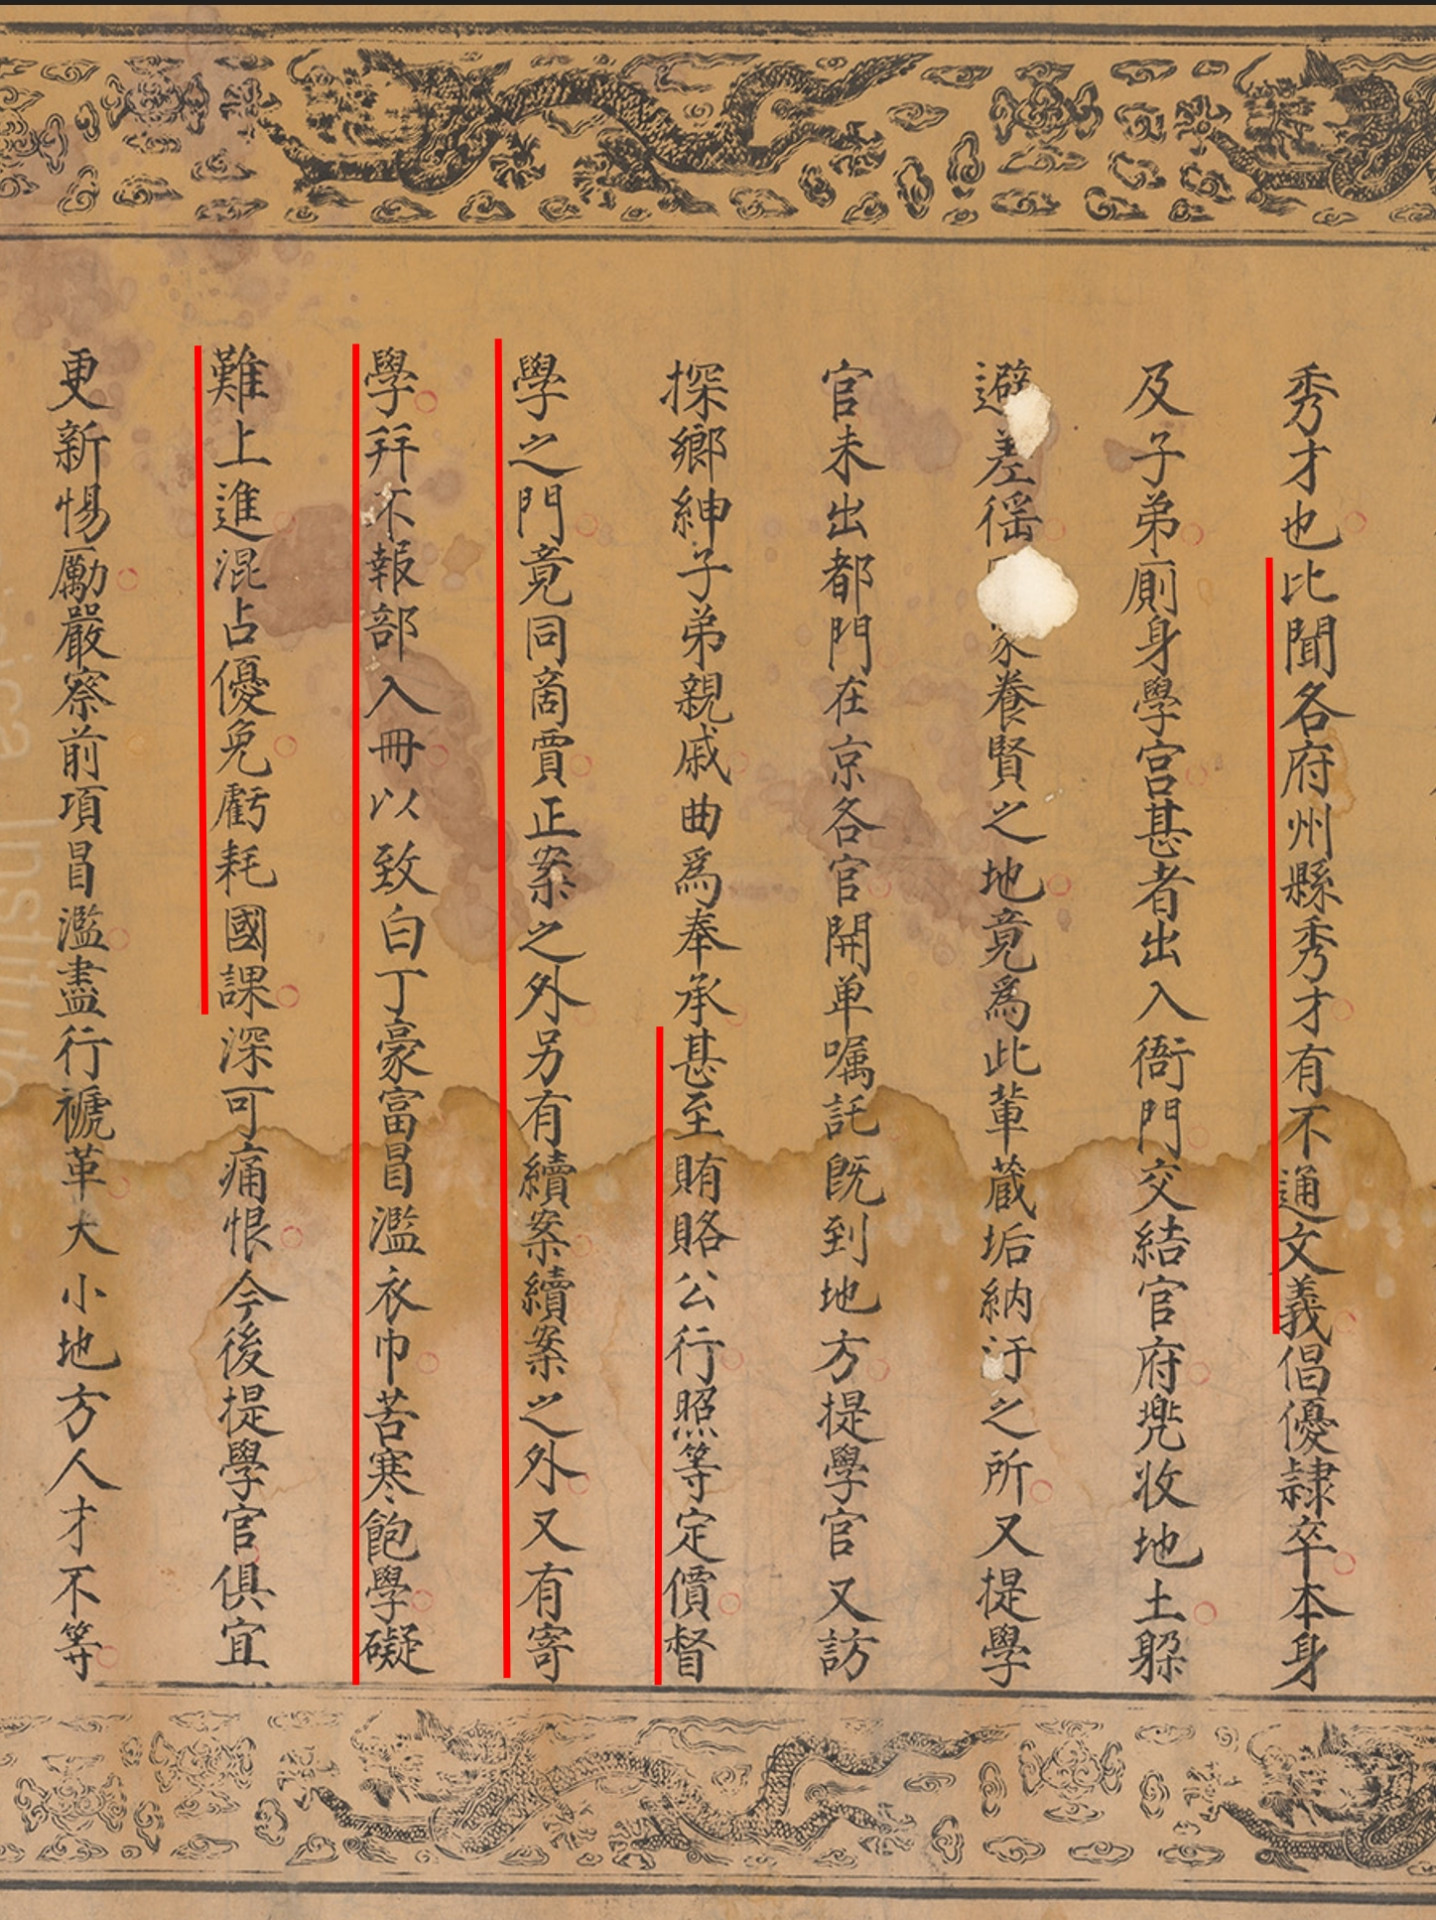 秀才也比聞各府州縣秀才有不通文義倡優隷卒本身
及子弟厠身學宮甚者出入衙門交結官府兜收地土躱
避差徭家養賢之地竟爲此輩蔵垢納汙之所又提學
官未出都門在京各官開单嘱託既到地方提學官又訪
探鄉紳子弟親戚曲爲奉承甚至賄賂公行照等定價督
學之門竟同啇賈正案之外另有續案續案之外又有寄
學拜不報部入冊以致白丁豪富冒濫衣巾苦寒飽學礙
難上進混占優免虧耗國課深可痛恨今後提學官俱宜
更新惕勵嚴察前項冒濫盡行褫革大小地方人才不等